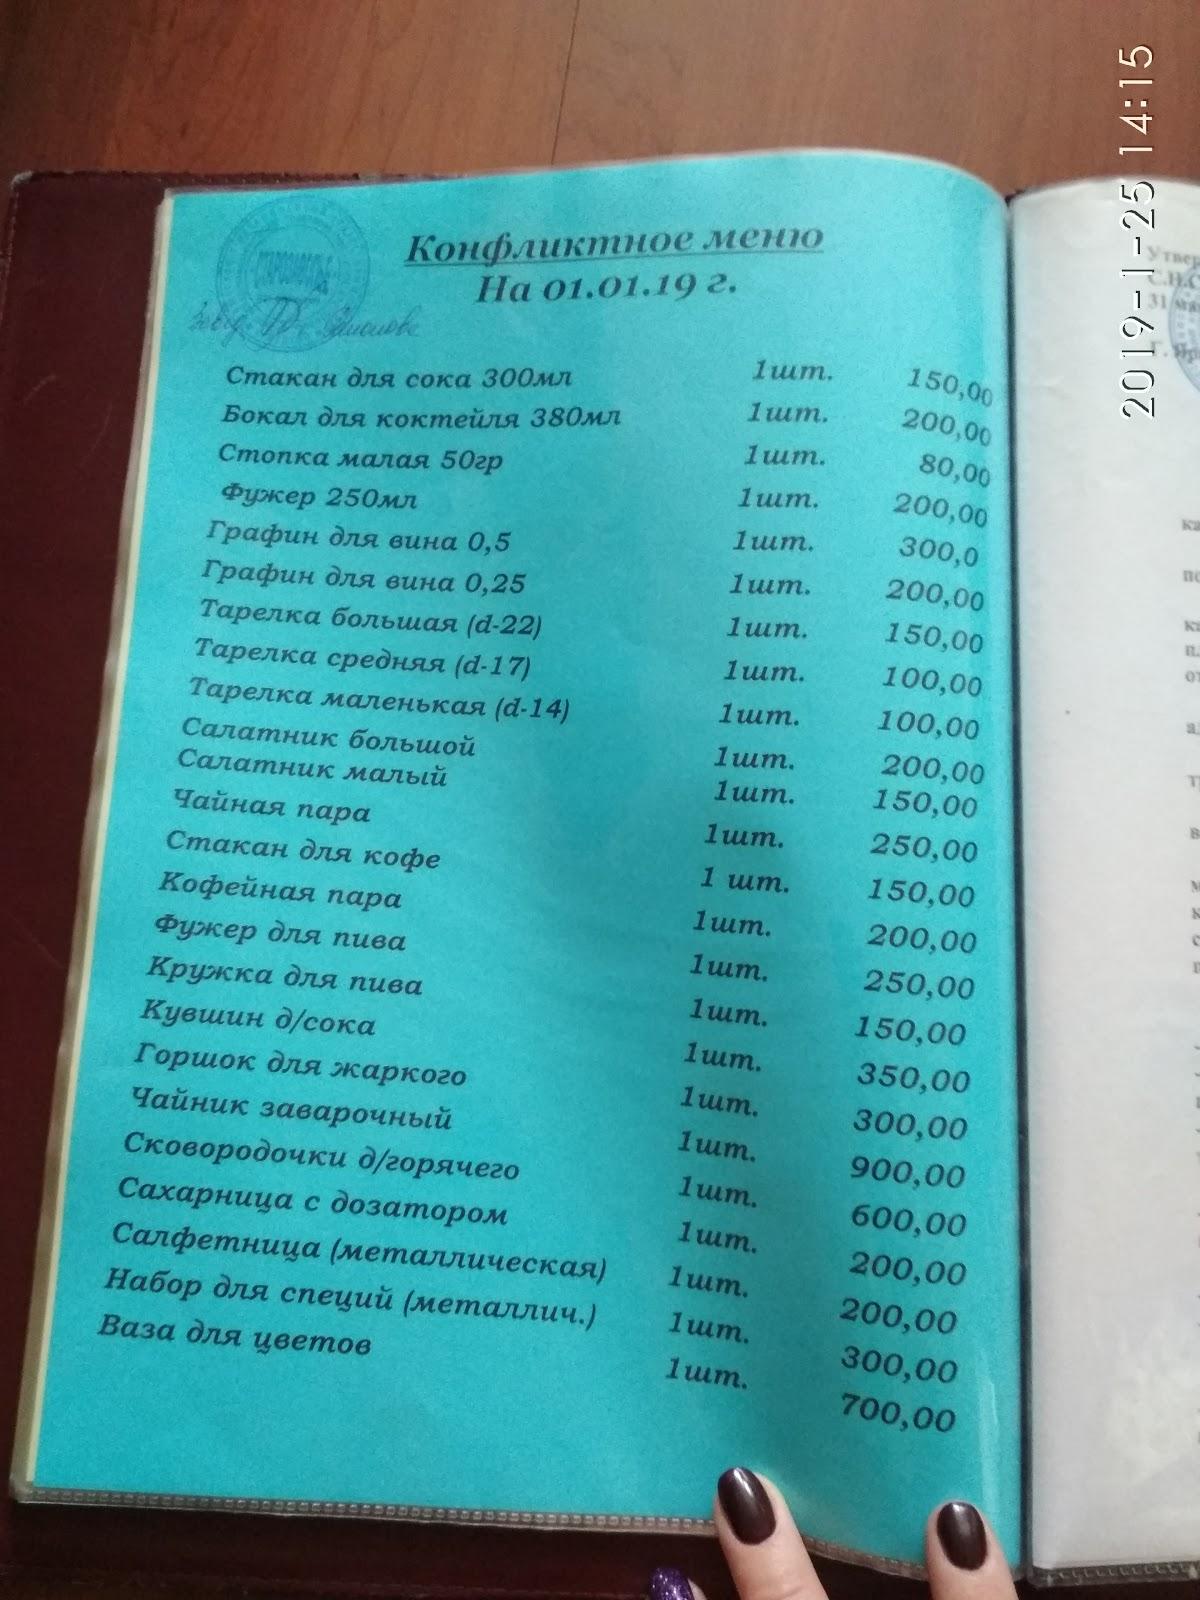 2019-1-25 14:15
Конфликтное меню
На 01.01.19 г.
Стакан для сока 300мл 1шт. 150,00
Бокал для коктейля 380мл 1шт. 200,00
Стопка малая 50гр 1шт. 80,00
Фужер 250мл 1шт. 200,00
Графин для вина 0,5 1шт. 300,0
Графин для вина 0,25 1шт. 200,00
Тарелка большая (d-22) 1шт. 150,00
Тарелка средняя (d-17) 1шт. 100,00
Тарелка маленькая (d-14) 1шт. 100,00
Салатник большой 1шт. 200,00
Салатник малый 1шт. 150,00
Чайная пара 1шт. 250,00
Стакан для кофе 1 шт. 150,00
Кофейная пара 1шт. 200,00
Фужер для пива 1шт. 250,00
Кружка для пива 1шт. 150,00
Кувшин д/сока 1шт. 350,00
Горшок для жаркого 1шт. 300,00
Чайник заварочный 1шт. 900,00
Сковородочки д/горячего 1шт. 600,00
Сахарница с дозатором 1шт. 200,00
Салфетница (металлическая) 1шт. 200,00
Набор для специй (металлич.) 1шт. 300,00
Ваза для цветов 1шт. 700,00